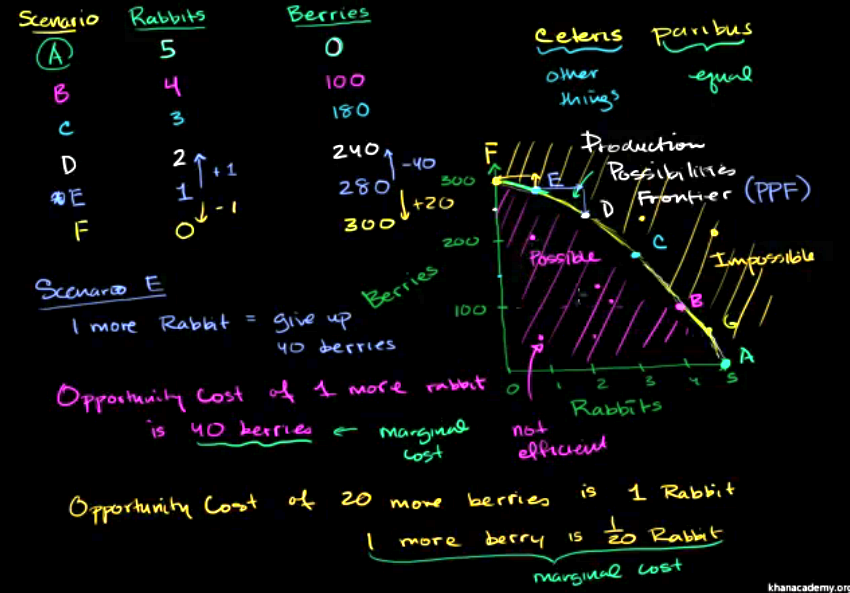 Scenario Rabbits Berries
A 5 0
B 4 100
C 3 180
D 2 240
+1 -40
*E 1 280
-1 +20
F 0 300
Ceteris paribus
other things
equal
Production
Possibilities
Frontier (PPF)
F
300
E
D
200
C
Possible
Impossible
Berries
100
B
G
A
0 1 2 3 4 5
Rabbits
not
efficient
Scenario E
1 more Rabbit = give up
40 berries
Opportunity Cost of 1 more rabbit
is 40 berries ← marginal
cost
Opportunity Cost of 20 more berries is 1 Rabbit
1 more berry is 1/20 Rabbit
marginal cost
khanacademy.org